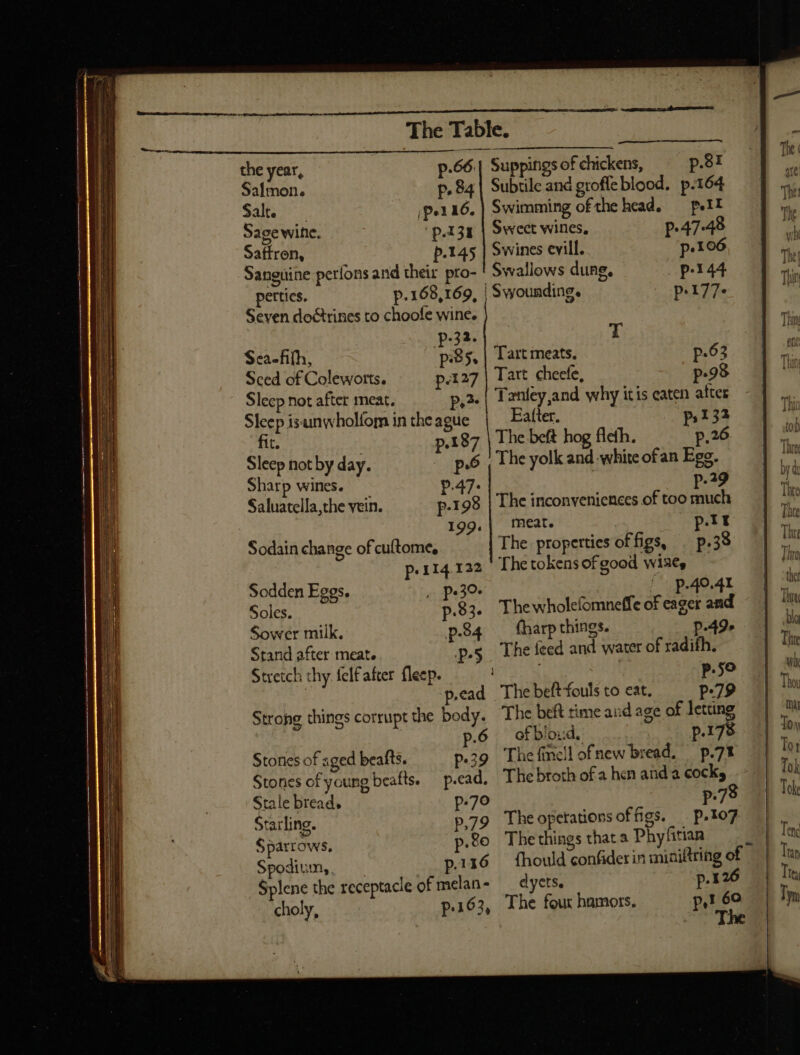 The Table.
the year, p.66.
Salmon. p. 84
Salt. p.116.
Sage wine. p.131
Saffron, p.145
Sanguine perſons and their pro-
perties. p.168,169,
Seven doctrines to chooſe wine.
p.32.
Sea-fiſh, p.85.
Seed of Coleworts. p.127
Sleep not after meat. p.2.
Sleep is unwholſom in the ague
fit. p.187
Sleep not by day. p.6
Sharp wines. p.47.
Saluatella,the vein. p.198
199.
Sodain change of cuſtome,
p.114 122
Sodden Eggs. p.30.
Soles. p.83.
Sower milk. p.84
Stand after meat. p.5
Stretch thy ſelf after ſleep.
p.ead
Strong things corrupt the body.
p.6
Stones of aged beaſts. p.39
Stones of young beaſts. p.ead.
Stale bread. p.70
Starling. p.79
Sparrows. p.80
Spodium, p.116
Splene the receptacle of melan-
choly, p.163,
Suppings of chickens, p.81
Subtile and groſſe blood. p.164
Swimming of the head. p.11
Sweet wines, p.47.48
Swines evill. p.106
Swallows dung. p.144
Swounding. p.177.
T
Tart meats. p.63
Tart cheeſe, p.98
Tanſey,and why it is eaten after
Eaſter. p.132
The beſt hog fleſh. p.26
The yolk and white of an Egg.
p.29
The inconveniences of too much
meat. p.11
The properties of figs, p.38
The tokens of good wine,
p.40.41
The wholeſomneſſe of eager and
ſharp things. p.49.
The ſeed and water of radiſh.
p.50
The beſt fouls to eat. p.79
The beſt time and age of letting
of bloud. p.178
The ſmell of new bread. p.71
The broth of a hen and a cock,
p.78
The operations of figs. p.107
The things that a Phyſitian
ſhould conſider in miniſtring of
dyets. p.126
The four humors. p.160
The